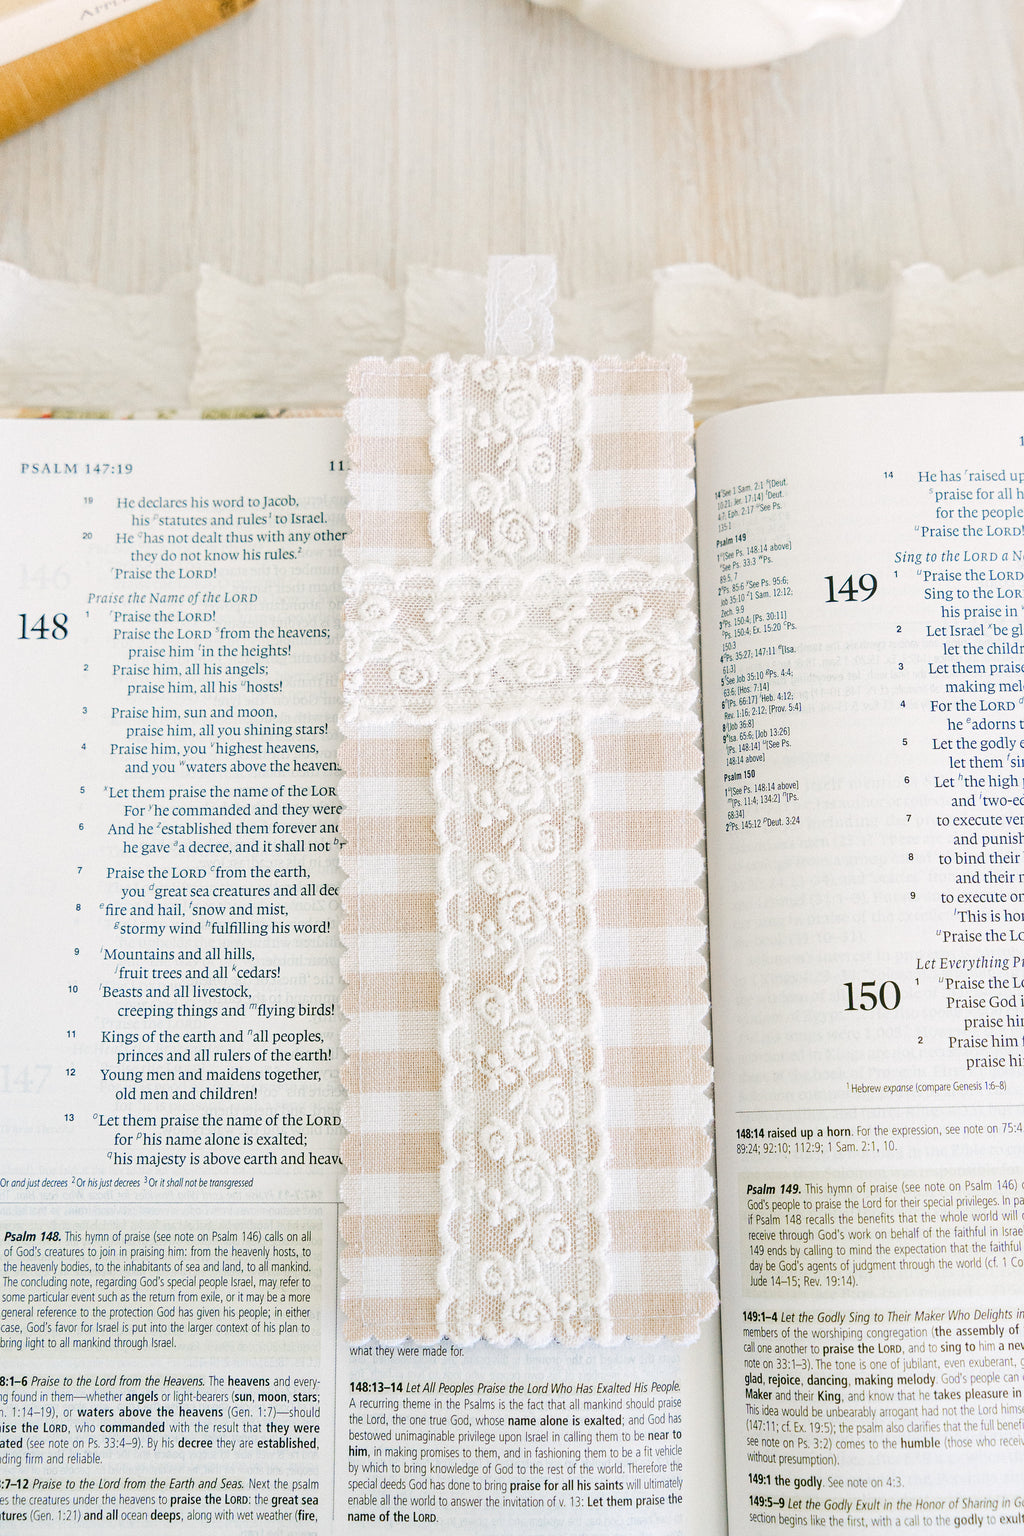 PSALM 147:19
19 He declares his word to Jacob,
his pstatutes and ruless to Israel.
20 He qhas not dealt thus with any other
they do not know his rules.2
rPraise the LORD!
Praise the Name of the LORD
148 1 rPraise the LORD!
Praise the LORD sfrom the heavens;
praise him tin the heights!
2 Praise him, all his angels;
praise him, all his uhosts!
3 Praise him, sun and moon,
praise him, all you shining stars!
4 Praise him, you vhighest heavens,
and you wwaters above the heavens
5 xLet them praise the name of the LOR
For yhe commanded and they were
6 And he zestablished them forever and
he gave aa decree, and it shall not
7 Praise the LORD cfrom the earth,
you dgreat sea creatures and all dee
8 efire and hail, fsnow and mist,
gstormy wind hfulfilling his word!
9 iMountains and all hills,
jfruit trees and all kcedars!
10 lBeasts and all livestock,
creeping things and mflying birds!
11 Kings of the earth and nall peoples,
princes and all rulers of the earth!
12 Young men and maidens together,
old men and children!
13 oLet them praise the name of the LORD
for phis name alone is exalted;
qhis majesty is above earth and heave
Or and just decrees 2 Or his just decrees 3 Or it shall not be transgressed
Psalm 148. This hymn of praise (see note on Psalm 146) calls on all
of God's creatures to join in praising him: from the heavenly hosts, to
the heavenly bodies, to the inhabitants of sea and land, to all mankind.
The concluding note, regarding God's special people Israel, may refer to
some particular event such as the return from exile, or it may be a more
general reference to the protection God has given his people; in either
case, God's favor for Israel is put into the larger context of his plan to
bring light to all mankind through Israel.
8:1–6 Praise to the Lord from the Heavens. The heavens and every-
ng found in them—whether angels or light-bearers (sun, moon, stars;
n. 1:14–19), or waters above the heavens (Gen. 1:7)—should
aise the LORD, who commanded with the result that they were
ated (see note on Ps. 33:4–9). By his decree they are established,
ding firm and reliable.
:7–12 Praise to the Lord from the Earth and Seas. Next the psalm
es the creatures under the heavens to praise the LORD: the great sea
tures (Gen. 1:21) and all ocean deeps, along with wet weather (fire,
what they were made for.
148:13–14 Let All Peoples Praise the Lord Who Has Exalted His People.
A recurring theme in the Psalms is the fact that all mankind should praise
the Lord, the one true God, whose name alone is exalted; and God has
bestowed unimaginable privilege upon Israel in calling them to be near to
him, in making promises to them, and in fashioning them to be a fit vehicle
by which to bring knowledge of God to the rest of the world. Therefore the
special deeds God has done to bring praise for all his saints will ultimately
enable all the world to answer the invitation of v. 13: Let them praise the
name of the LORD.
14 See 1 Sam. 2:1 [Deut.
10:21; Jer. 17:14] Deut.
4:7; Eph. 2:17 See Ps.
135:1
Psalm 149
1 [See Ps. 148:14 above]
See Ps. 33:3 Ps.
89:5, 7
2 Ps. 85:6 See Ps. 95:6;
Job 35:10 1 Sam. 12:12;
Zech. 9:9
3 Ps. 150:4; [Ps. 30:11]
Ps. 150:4; Ex. 15:20 Ps.
150:3
4 Ps. 35:27; 147:11 [Isa.
61:3]
5 See Job 35:10 Ps. 4:4;
63:6; [Hos. 7:14]
6 [Ps. 66:17] Heb. 4:12;
Rev. 1:16; 2:12; [Prov. 5:4]
8 [Job 36:8]
9 Isa. 65:6; [Job 13:26]
[Ps. 148:14] [See Ps.
148:14 above]
Psalm 150
1 [See Ps. 148:14 above]
[Ps. 11:4; 134:2] [Ps.
68:34]
2 Ps. 145:12 Deut. 3:24
14 He has rraised up
spraise for all h
for the people
uPraise the LORD!
Sing to the LORD a N
149 1 uPraise the LORD
Sing to the LOR
his praise in
2 Let Israel xbe gl
let the childr
3 Let them praise
making mel
4 For the LORD
he eadorns t
5 Let the godly e
let them fsin
6 Let hthe high p
and itwo-ed
7 to execute ven
and punish
8 to bind their
and their n
9 to execute on
lThis is hon
uPraise the Lo
Let Everything Pr
150 1 uPraise the LO
Praise God i
praise hi
2 Praise him f
praise hi
1 Hebrew expanse (compare Genesis 1:6–8)
148:14 raised up a horn. For the expression, see note on 75:4
89:24; 92:10; 112:9; 1 Sam. 2:1, 10.
Psalm 149. This hymn of praise (see note on Psalm 146) c
God's people to praise the Lord for their special privileges. In pa
if Psalm 148 recalls the benefits that the whole world will
receive through God's work on behalf of the faithful in Israe
149 ends by calling to mind the expectation that the faithful
day be God's agents of judgment through the world (cf. 1 Co
Jude 14–15; Rev. 19:14).
149:1–4 Let the Godly Sing to Their Maker Who Delights in
members of the worshiping congregation (the assembly of
call one another to praise the LORD, and to sing to him a new
note on 33:1–3). The tone is one of jubilant, even exuberant, g
glad, rejoice, dancing, making melody. God's people can
Maker and their King, and know that he takes pleasure in
This idea would be unbearably arrogant had not the Lord himse
(147:11; cf. Ex. 19:5); the psalm also clarifies that the full benefi
see note on Ps. 3:2) comes to the humble (those who receiv
without presumption).
149:1 the godly. See note on 4:3.
149:5–9 Let the Godly Exult in the Honor of Sharing in Go
section begins like the first, with a call to the godly to exult